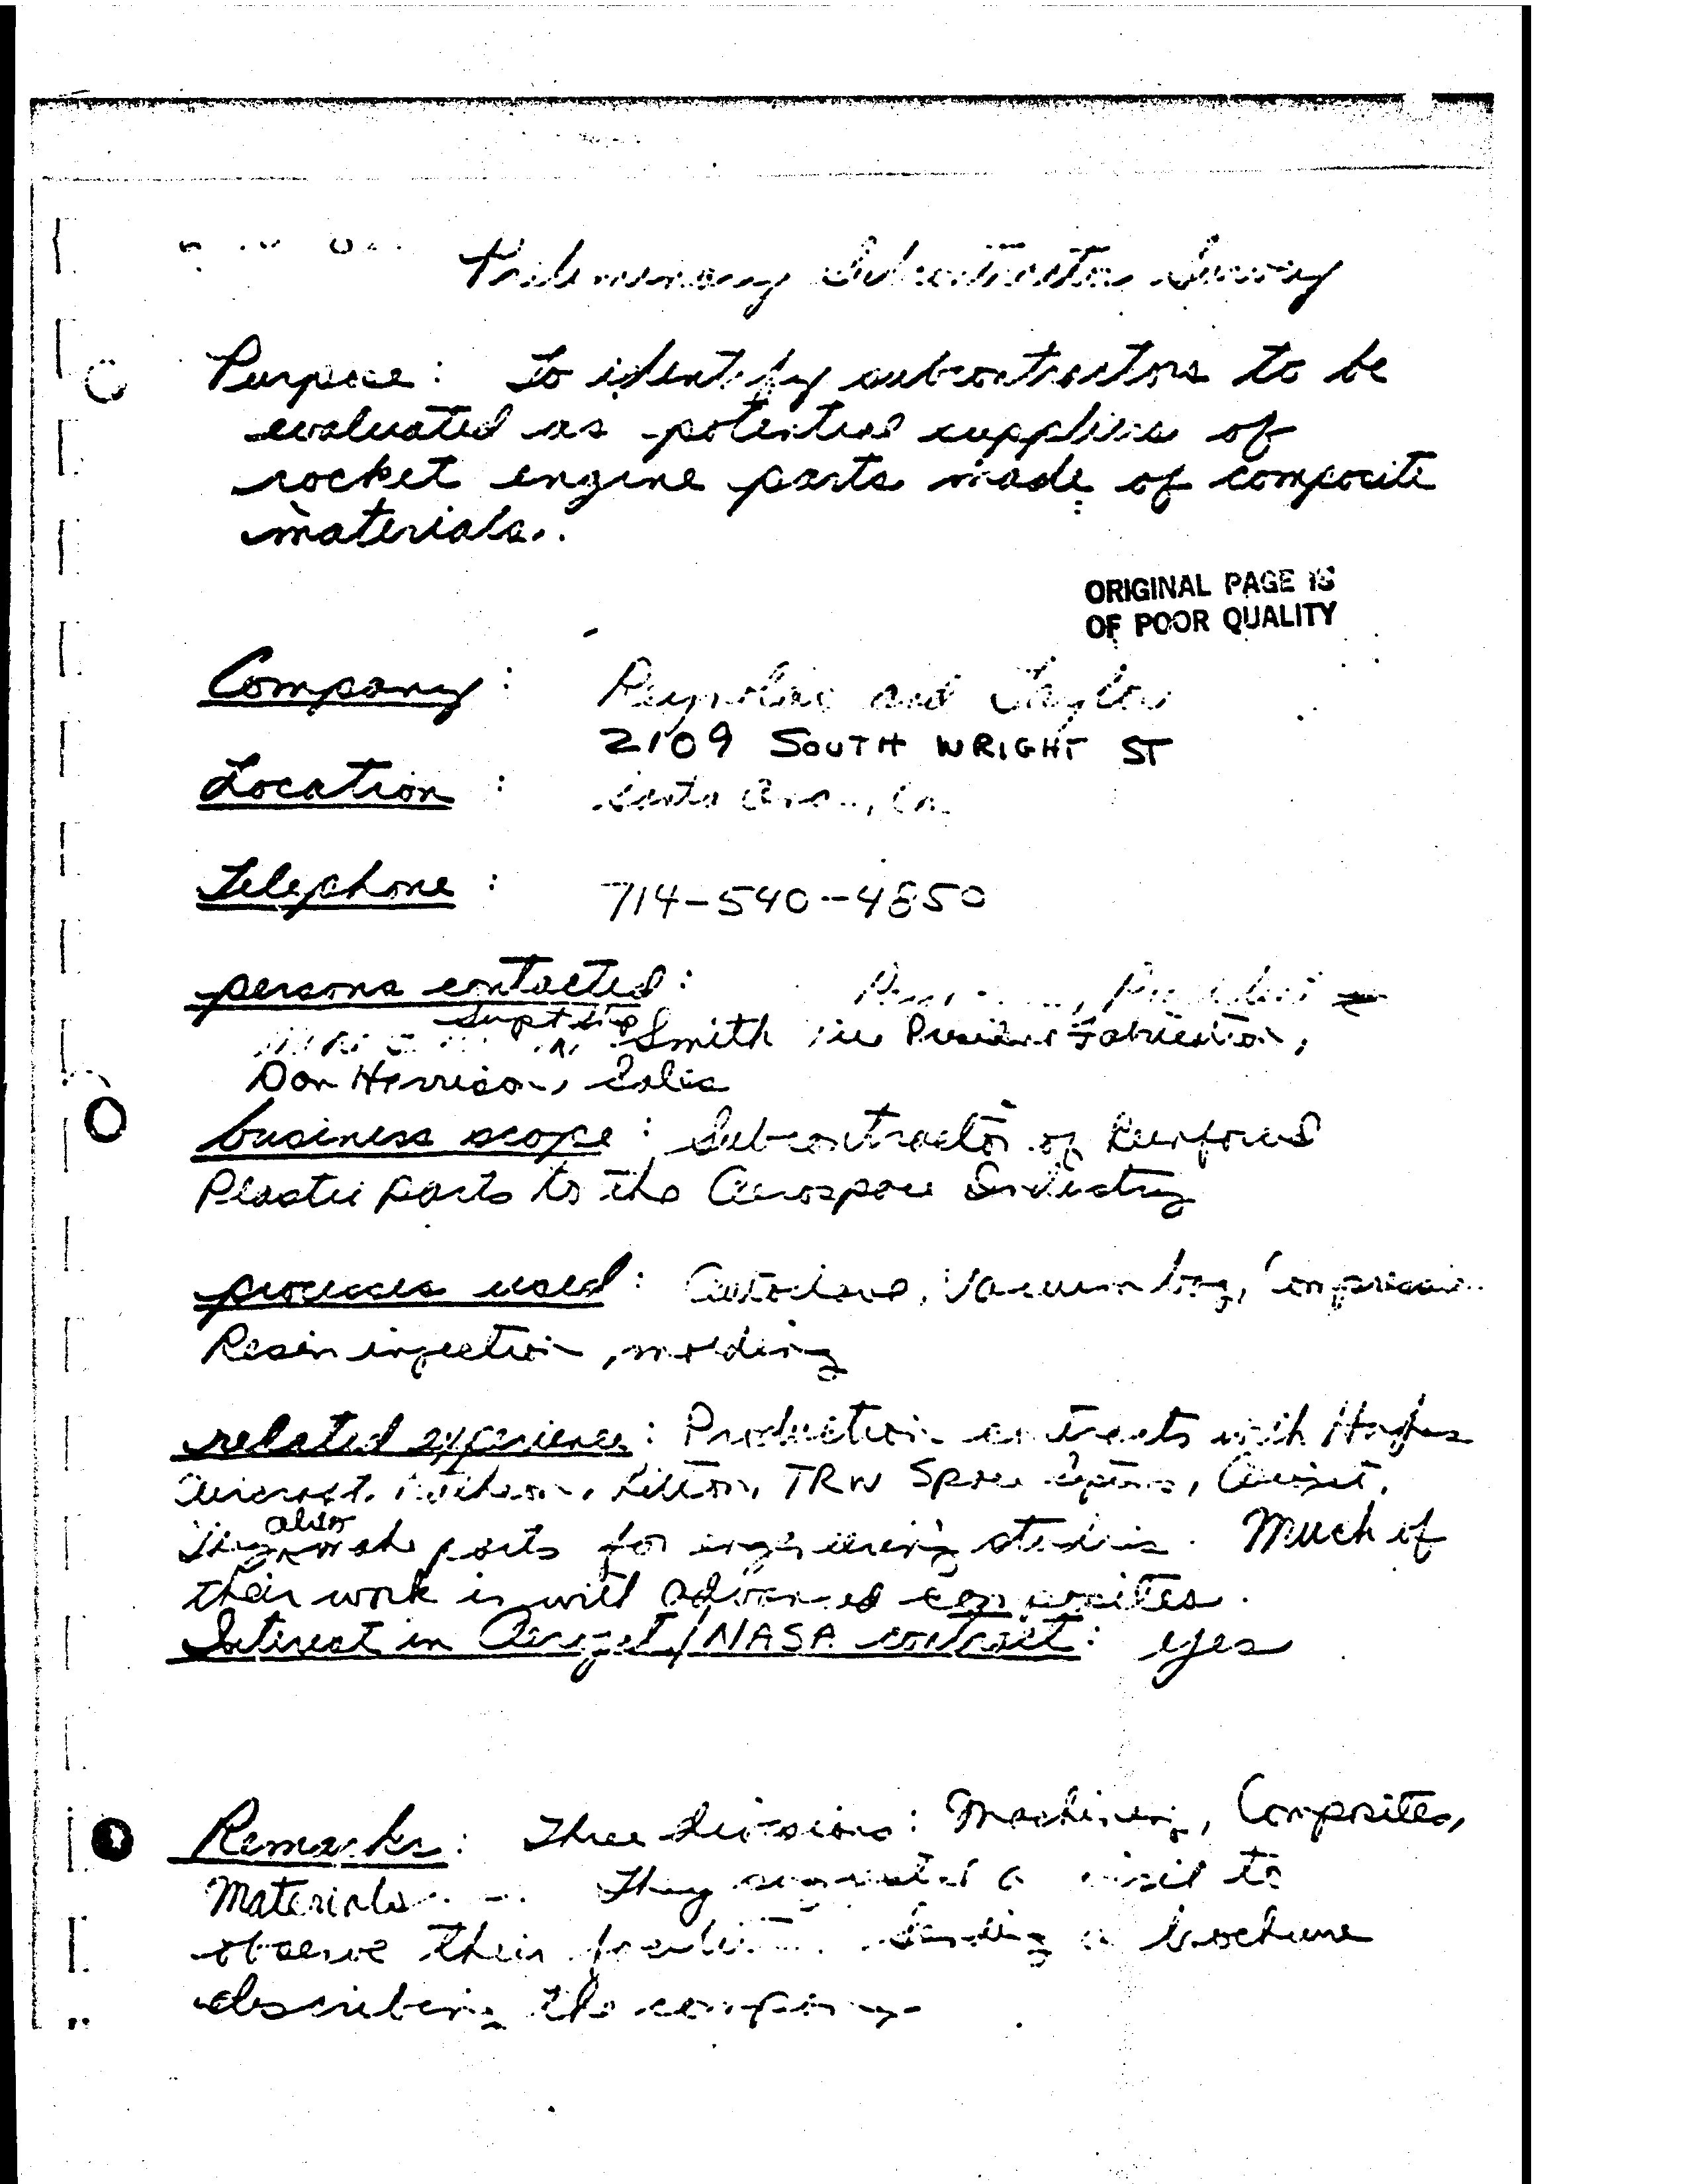 Preliminary Subcontractor Survey
Purpose: To identify subcontractors to be
evaluated as potential suppliers of
rocket engine parts made of composite
materials.
ORIGINAL PAGE IS
OF POOR QUALITY
Company: Reynolds and Taylor
2109 SOUTH WRIGHT ST
Location: Santa Ana, Ca.
Telephone: 714-540-4850
persons contacted:
Smith Vice President Fabrication,
Don Harrison, Sales
business scope: Subcontractor of Reinforced
Plastic parts to the Aerospace Industry
processes used: Autoclave, Vacuum bag, Compression
Resin injection, molding
related experience: Production contracts with Hughes
Aircraft, Litton, TRW Space Systems,
also
They make parts for engineering studies. Much of
their work is with advanced composites.
Interest in Aerojet/NASA contract: yes
Remarks: Three divisions: Machining, Composites,
Materials. They suggested a visit to
observe their facilities. Sending a brochure
describing the company